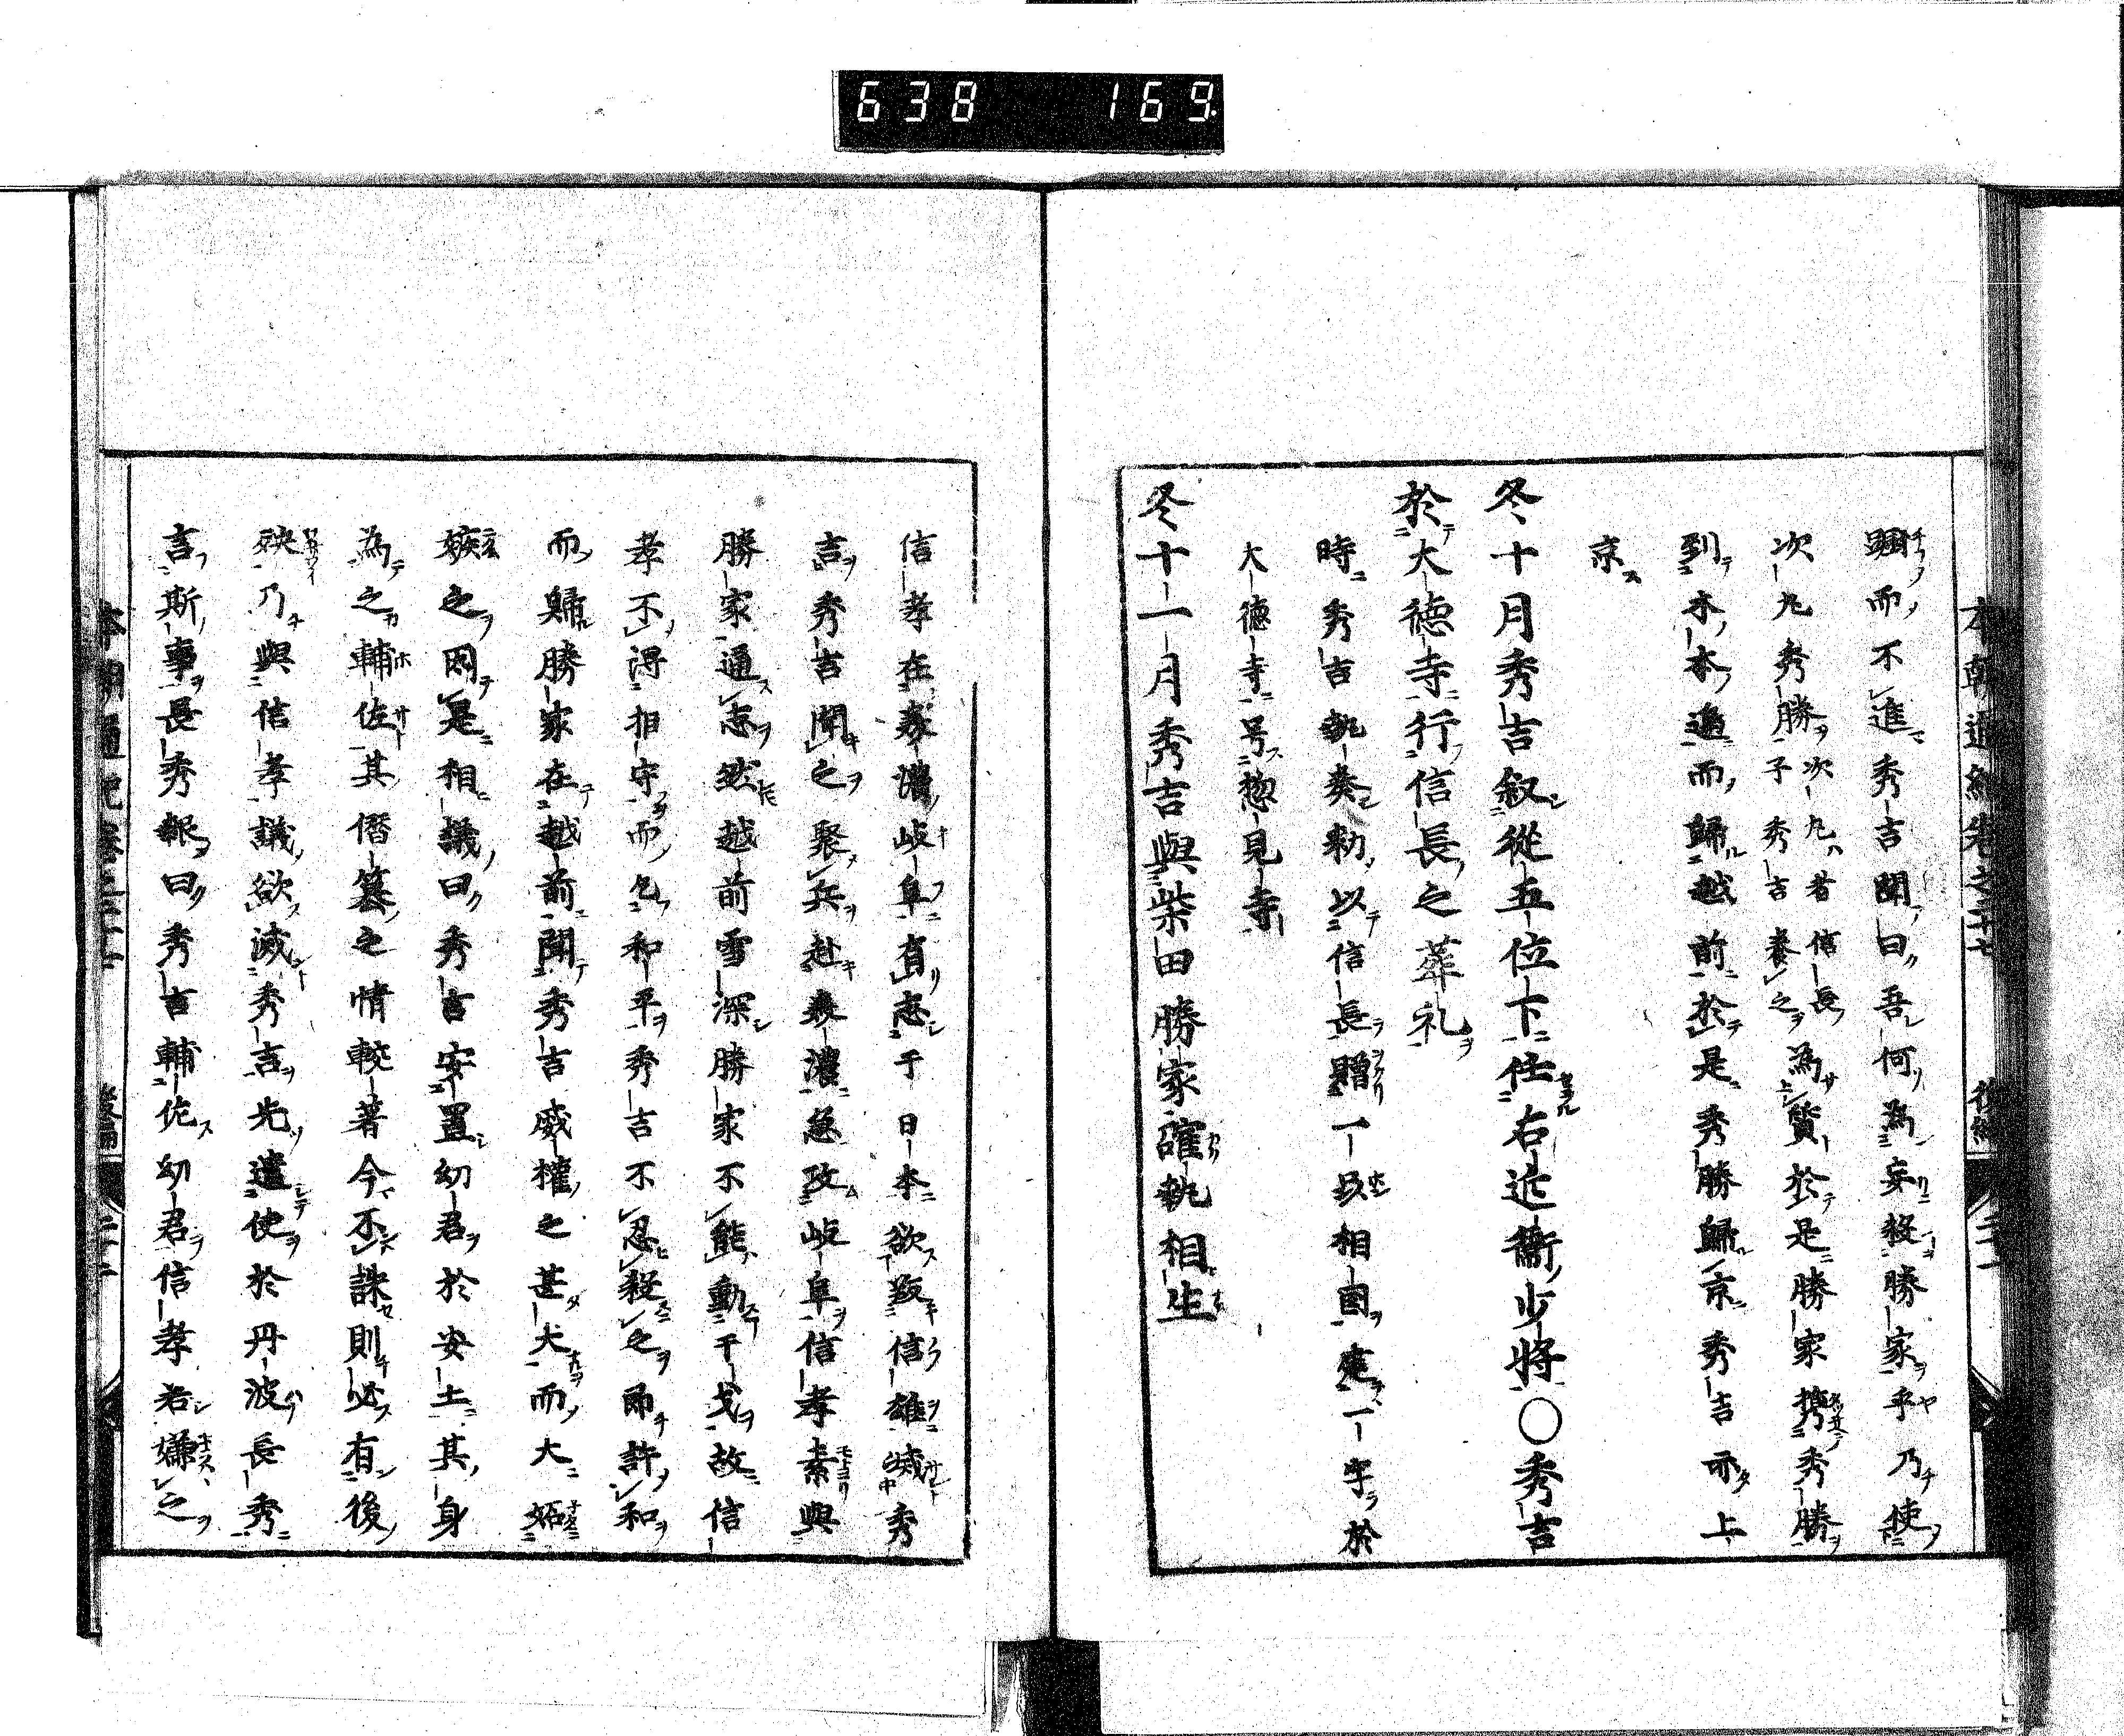 638 169
本朝通紀卷之二十七 後編 二十一
蹰而不進秀吉聞曰吾何為妄殺勝家乎乃使
次丸秀勝次丸者信長子秀吉養之為質於是勝家携秀勝
到木本邉而歸越前於是秀勝歸京秀吉亦上
京
冬十月秀吉叙從五位下任右近衛少將〇秀吉
於大德寺行信長之葬礼
時秀吉執奏勅以信長贈一品相國建一宇於
大德寺号惣見寺
冬十一月秀吉與柴田勝家確執相生
信孝在濃岐阜有志于日本欲叛信雄滅秀
吉秀吉聞之聚兵赴美濃急攻岐阜信孝素與
勝家通志然越前雪深勝家不能動干戈故信
孝不得相守而乞和平秀吉不忍殺之即許和
而歸勝家在越前聞秀吉威權之甚大而大妬
嫉之因是相議曰秀吉安置幼君於安土其身
為之輔佐其僭簒之情較著今不誅則必有後
殃乃與信孝議欲滅秀吉先遣使於丹波長秀
言斯事長秀報曰秀吉輔佐幼君信孝若嫌之
本朝通紀卷二十七 後編 二十一